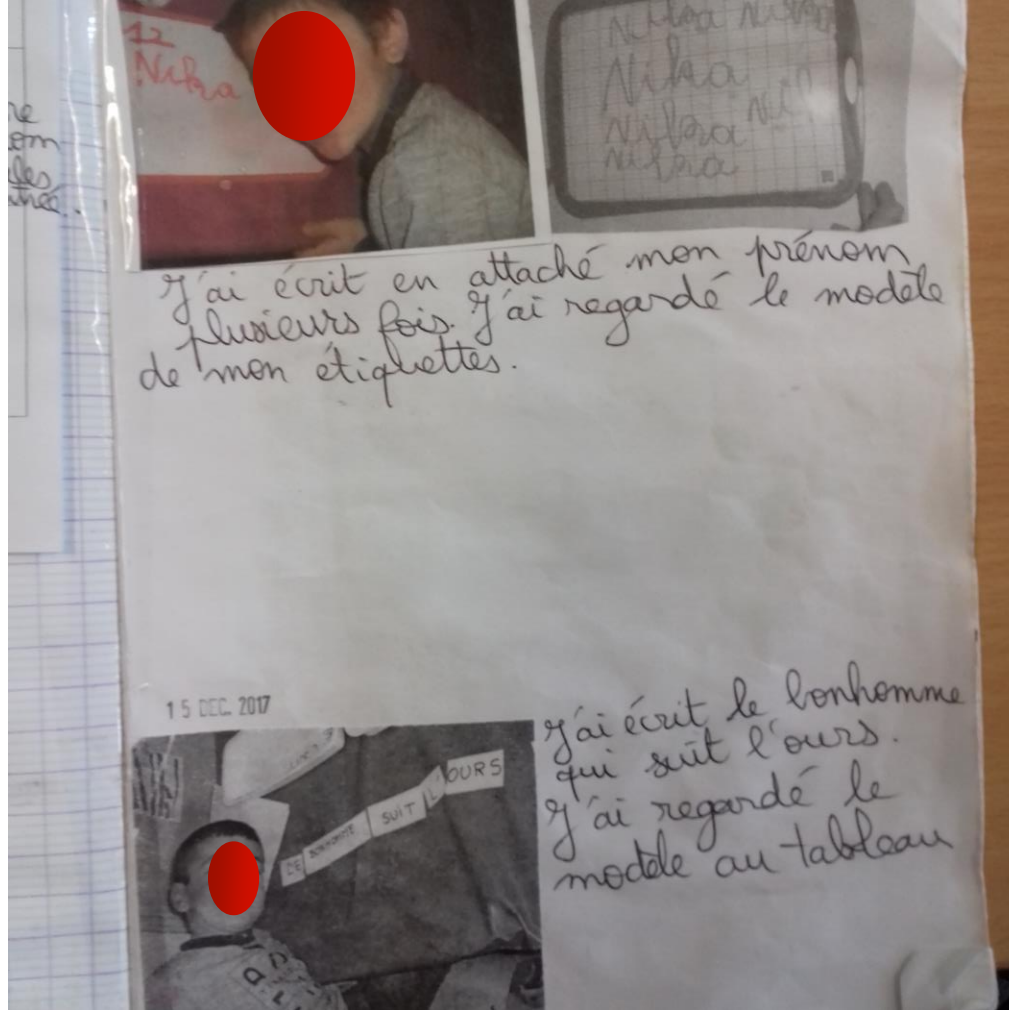 12
Nikra
Nikra Nikra
Nikra
Nikra
Nikra
J'ai écrit en attaché mon prénom
plusieurs fois. J'ai regardé le modèle
de mon étiquettes.
15 DEC. 2017
LE BONHOMME SUIT L'OURS
J'ai écrit le bonhomme
qui suit l'ours.
J'ai regardé le
modèle au tableau